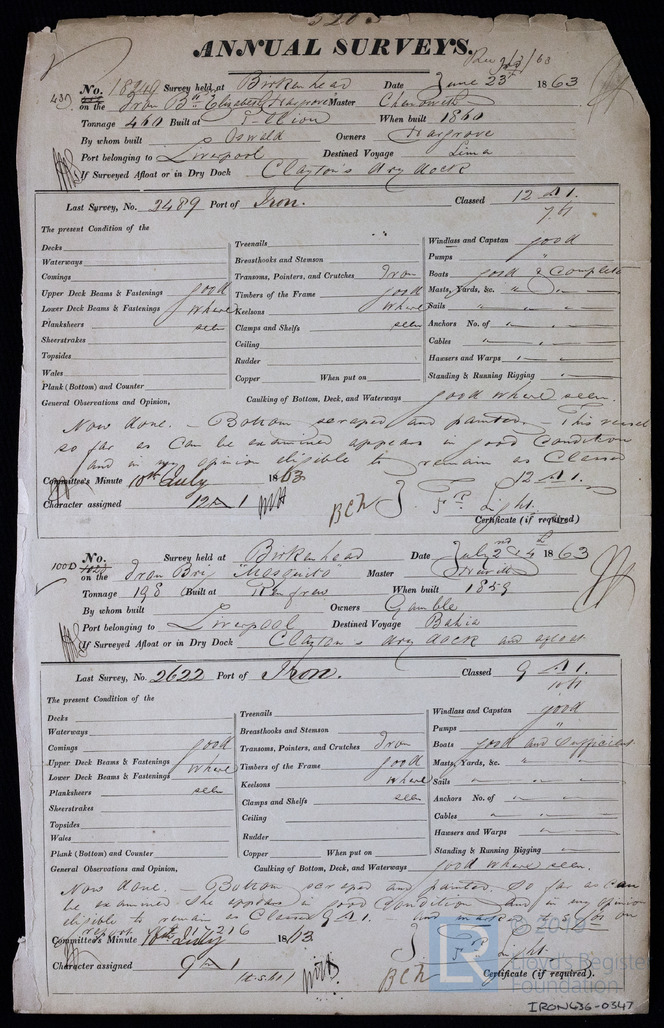 5203
ANNUAL SURVEYS.
Rec 2/7/63
No. Survey held at Birkenhead Date June 23rd 1863
430 on the Iron Bk Elizabeth Hargrove Master Chenoweth
Tonnage 460 Built at When built 1860
By whom built Oswald Owners Hargrove
Port belonging to Liverpool Destined Voyage Lima
If Surveyed Afloat or in Dry Dock Clayton's dry dock
Last Survey, No. 2489 Port of Iron. Classed 12 A 1.
The present Condition of the
Decks
Waterways
Comings
Upper Deck Beams & Fastenings good
Lower Deck Beams & Fastenings where
Planksheers seen
Sheerstrakes
Topsides
Wales
Plank (Bottom) and Counter
Treenails "
Breasthooks and Stemson
Transoms, Pointers, and Crutches Iron
Timbers of the Frame good
Keelsons where
Clamps and Shelfs seen
Ceiling
Rudder
Copper When put on
Windlass and Capstan good
Pumps "
Boats good & Complete
Masts, Yards, &c. "
Sails "
Anchors No. of "
Cables "
Hawsers and Warps "
Standing & Running Rigging "
General Observations and Opinion, Caulking of Bottom, Deck, and Waterways good where seen.
Now done. - Bottom scraped and painted - This vessel
so far as can be examined appears in good Condition
and in my opinion eligible to remain as Classed
12 A 1.
Committee's Minute 10th July 1863
Character assigned 12 A 1
Light.
Certificate (if required)
No. Survey held at Birkenhead Date July 2nd & 4 1863
100D on the Iron Brig "Mosquito" Master
Tonnage 198 Built at Renfrew When built 1859
By whom built Owners Gamble
Port belonging to Liverpool Destined Voyage Bahia
If Surveyed Afloat or in Dry Dock Clayton's dry dock and afloat
Last Survey, No. 2622 Port of Iron. Classed 9 A 1.
The present Condition of the
Decks
Waterways
Comings good
Upper Deck Beams & Fastenings where
Lower Deck Beams & Fastenings
Planksheers seen
Sheerstrakes
Topsides
Wales
Plank (Bottom) and Counter
Treenails
Breasthooks and Stemson
Transoms, Pointers, and Crutches Iron
Timbers of the Frame good
Keelsons where
Clamps and Shelfs seen
Ceiling
Rudder
Copper When put on
Windlass and Capstan good
Pumps "
Boats good and Sufficient
Masts, Yards, &c. "
Sails "
Anchors No. of "
Cables "
Hawsers and Warps "
Standing & Running Rigging
General Observations and Opinion, Caulking of Bottom, Deck, and Waterways good where seen.
Now done. - Bottom scraped and painted. So far as can
be examined she appears in good Condition and in my opinion
eligible to remain as Classed 9 A 1. and
report
Committee's Minute 10th July 1863
Character assigned 9 A 1
Light.
Certificate (if required).
LR
© 2019
Lloyd's Register
Foundation
IRON436-0347